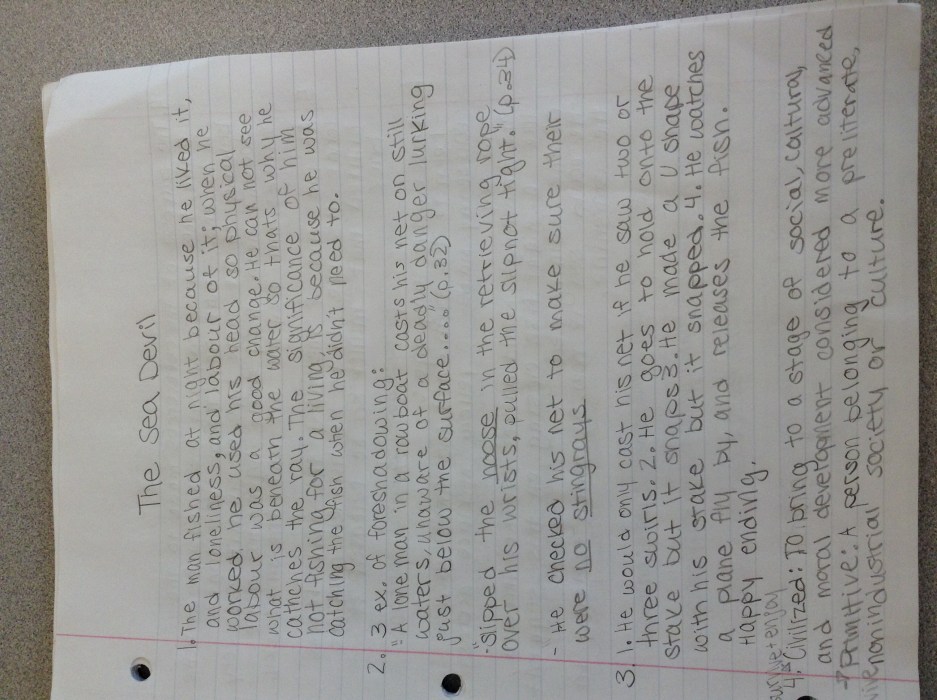 The Sea Devil
1. The man fished at night because he liked it,
and loneliness, and labour of it; when he
worked he used his head so physical
labour was a good change. He can not see
what is beneath the water so thats why he
cathches the ray. The significance of him
not fishing for a living, is because he was
catching the fish when he didn't need to.
2. 3 ex. of foreshadowing:
"A lone man in a rowboat casts his net on still
waters, unaware of a deadly danger lurking
just below the surface...." (p.32)
-"slipped the noose in the retrieving rope
over his wrists, pulled the slipnot tight." (p.34)
- He checked his net to make sure their
were no stingrays
3. 1. He would only cast his net if he saw two or
three swirls. 2. He goes to hold onto the
stake but it snaps 3. He made a U shape
with his stake but it snapped. 4. He watches
a plane fly by, and releases the fish.
Happy ending.
survive + enjoy
4. Civilized: To bring to a stage of social, caltural,
and moral development considered more advanced
→ Primitive: A person belonging to a preliterate,
nonindustrial society or culture.